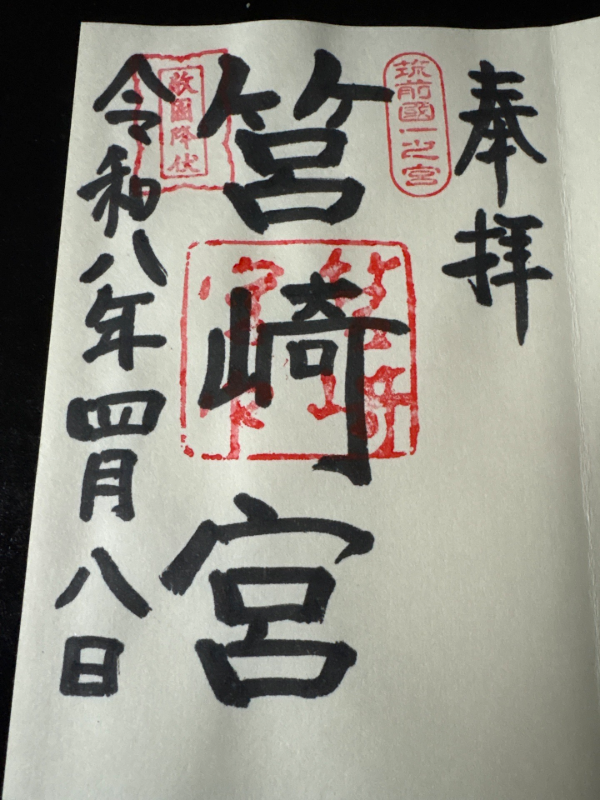 奉拝
筑前國一之宮
筥崎宮
敵國降伏
令和八年四月八日